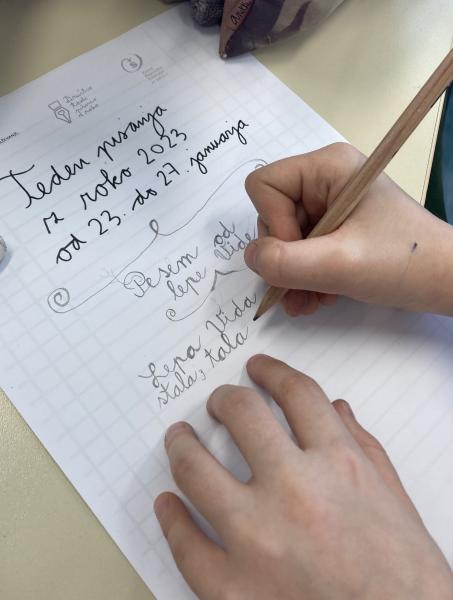 Društvo
Radi
pišemo
z roko
Teden pisanja
z roko 2023
od 23. do 27. januarja
Pesem od
lepe Vide
Lepa Vida
stala, tala